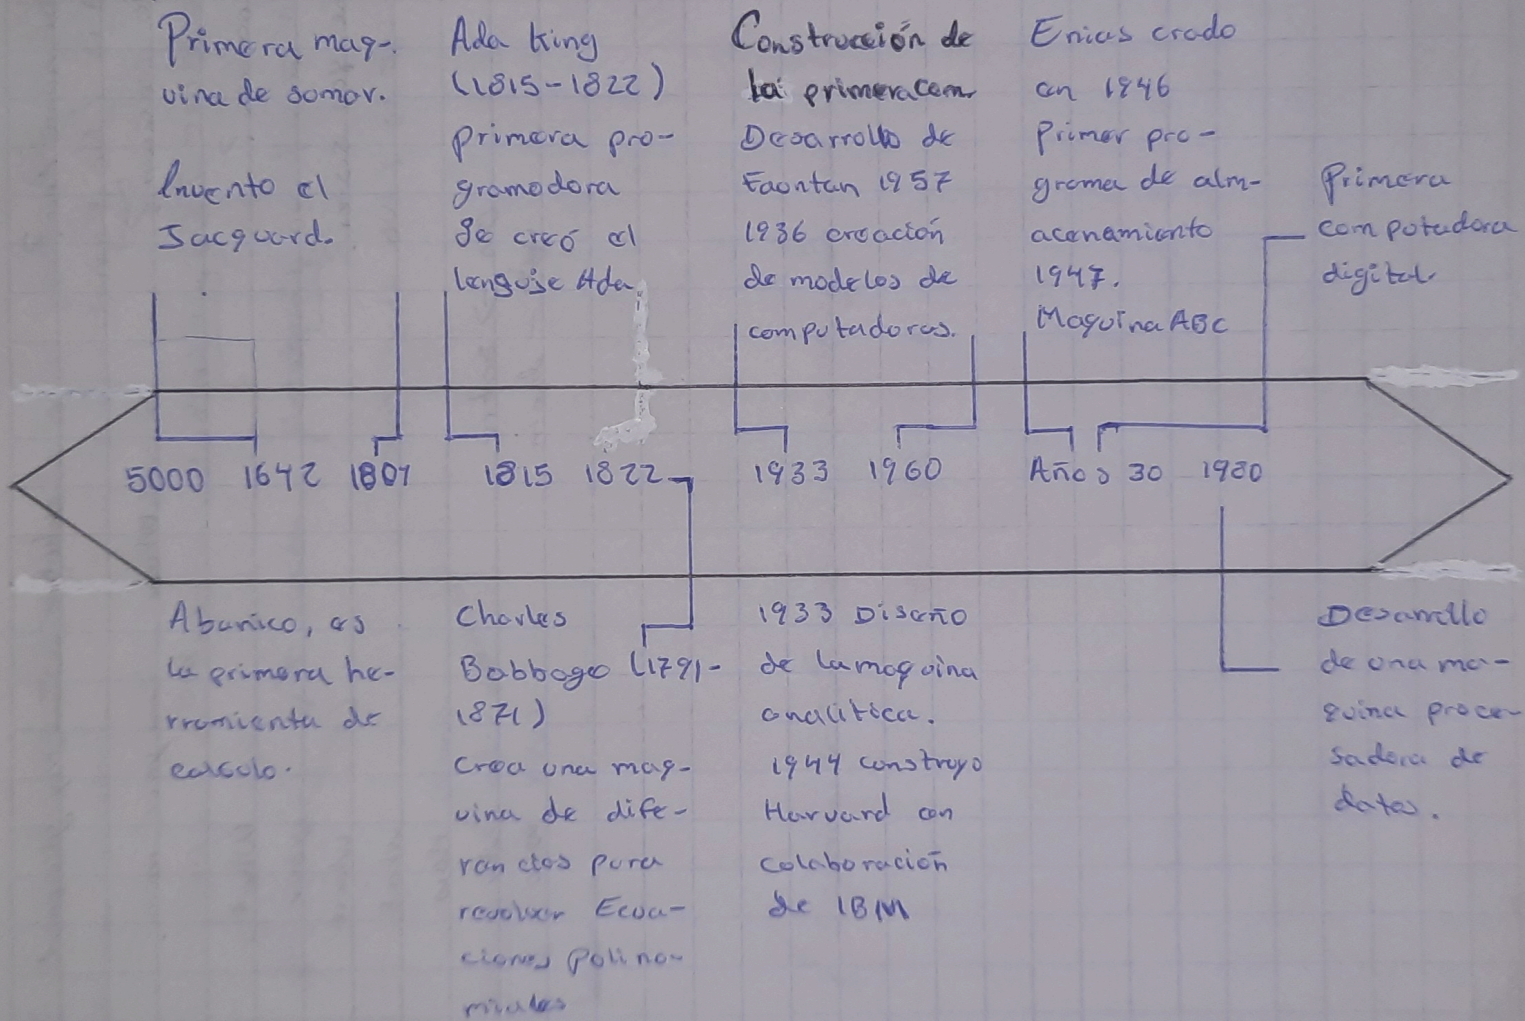 Primera maq-
uina de somar.
Invento el
Jacquard.
Ada King
(1815-1822)
primera pro-
gramadora
Se creó el
lenguaje Ada
Construcción de
la primera com
Desarrollo de
Faontan 1957
1936 creación
de modelos de
computadoras.
Enias crado
en 1946
Primer pro-
grama de alm-
acenamiento
1947.
Maquina ABC
Primera
computadora
digital
5000 1642 1801 1815 1822 1933 1960 Años 30 1980
Abanico, es
la primera he-
rramienta de
calculo.
Charles
Babbage (1791-
1871)
Crea una maq-
uina de dife-
rancias para
resolver Ecua-
ciones Polino-
miales
1933 Diseño
de la maquina
analitica.
1944 construyo
Harvard en
colaboración
de IBM
Desarrollo
de una ma-
quina proce-
sadora de
datos.